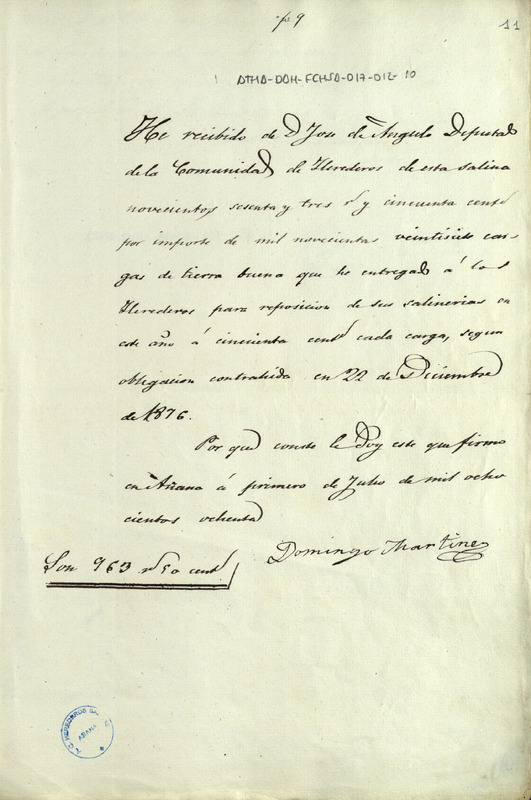 nº 9
11
ATHA-DAH-FCHSA-017-012-10
He recibido de D Jose de Angulo Deputad
de la Comunidad de Herederos de esta salina
novecientos sesenta y tres rs y cincuenta cents
por importe de mil novecientas veintisiete car-
gas de tierra buena que he entregado á los
Herederos para reposicion de sus salinerias en
este año á cincuenta cents cada carga, segun
obligacion contrahida en 22 de Diciembre
de 1876.
Por que conste le Doy este que firmo
en Añana á primero de Julio de mil ocho
cientos ochenta
Domingo Martinez
Son 963 rs 50 cents
HEREDEROS
AÑANA